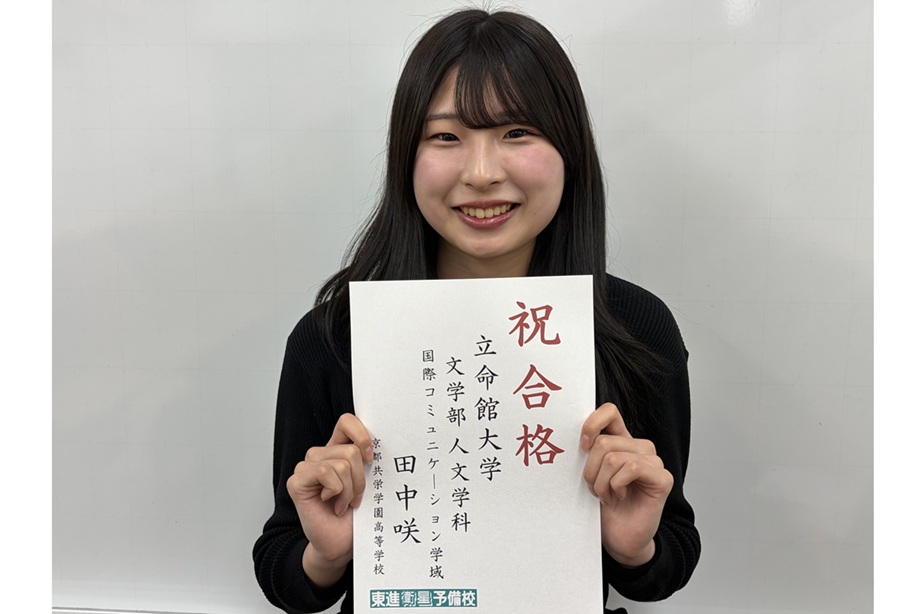 祝合格
立命館大学
文学部 人文学科
国際コミュニケーション学域
田中咲
京都共栄学園高等学校
東進衛星予備校